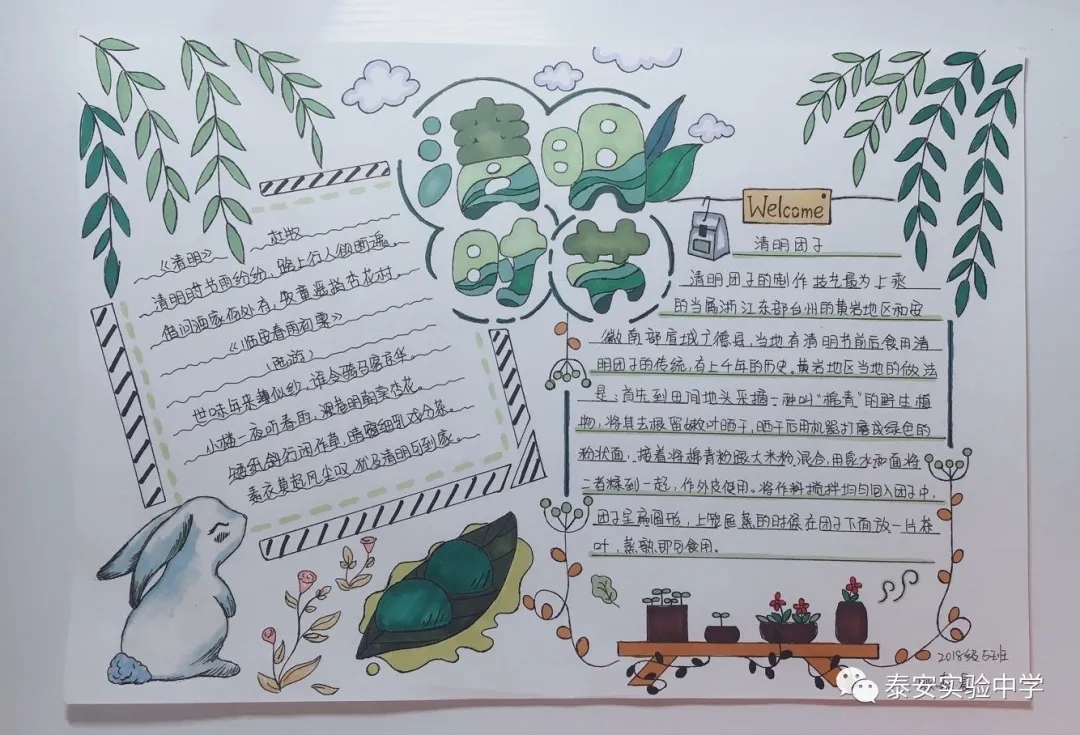 清明时节
《清明》
杜牧
清明时节雨纷纷，路上行人欲断魂。
借问酒家何处有，牧童遥指杏花村。
《临安春雨初霁》
世味年来薄似纱，谁令骑马客京华。
小楼一夜听春雨，深巷明朝卖杏花。
矮纸斜行闲作草，晴窗细乳戏分茶。
素衣莫起风尘叹，犹及清明可到家。
Welcome
清明团子
清明团子的制作技艺最为上乘
的当属浙江东部台州的黄岩地区和安
徽南部宣城广德县，当地有清明节前后食用清
明团子的传统，有上千年的历史。黄岩地区当地的做法
是：首先到田间地头采摘一种叫“棉青”的野生植
物，将其去根留嫩叶晒干，晒干后用机器打磨成绿色的
粉状面，接着将棉青粉跟大米粉混合，用泉水和面将
二者糅到一起，作外皮使用。将作料搅拌均匀回入团子中，
团子呈扁圆形，上笼屉蒸的时候在团子下面放一片
叶，蒸熟即可食用。
2018级5班
泰安实验中学